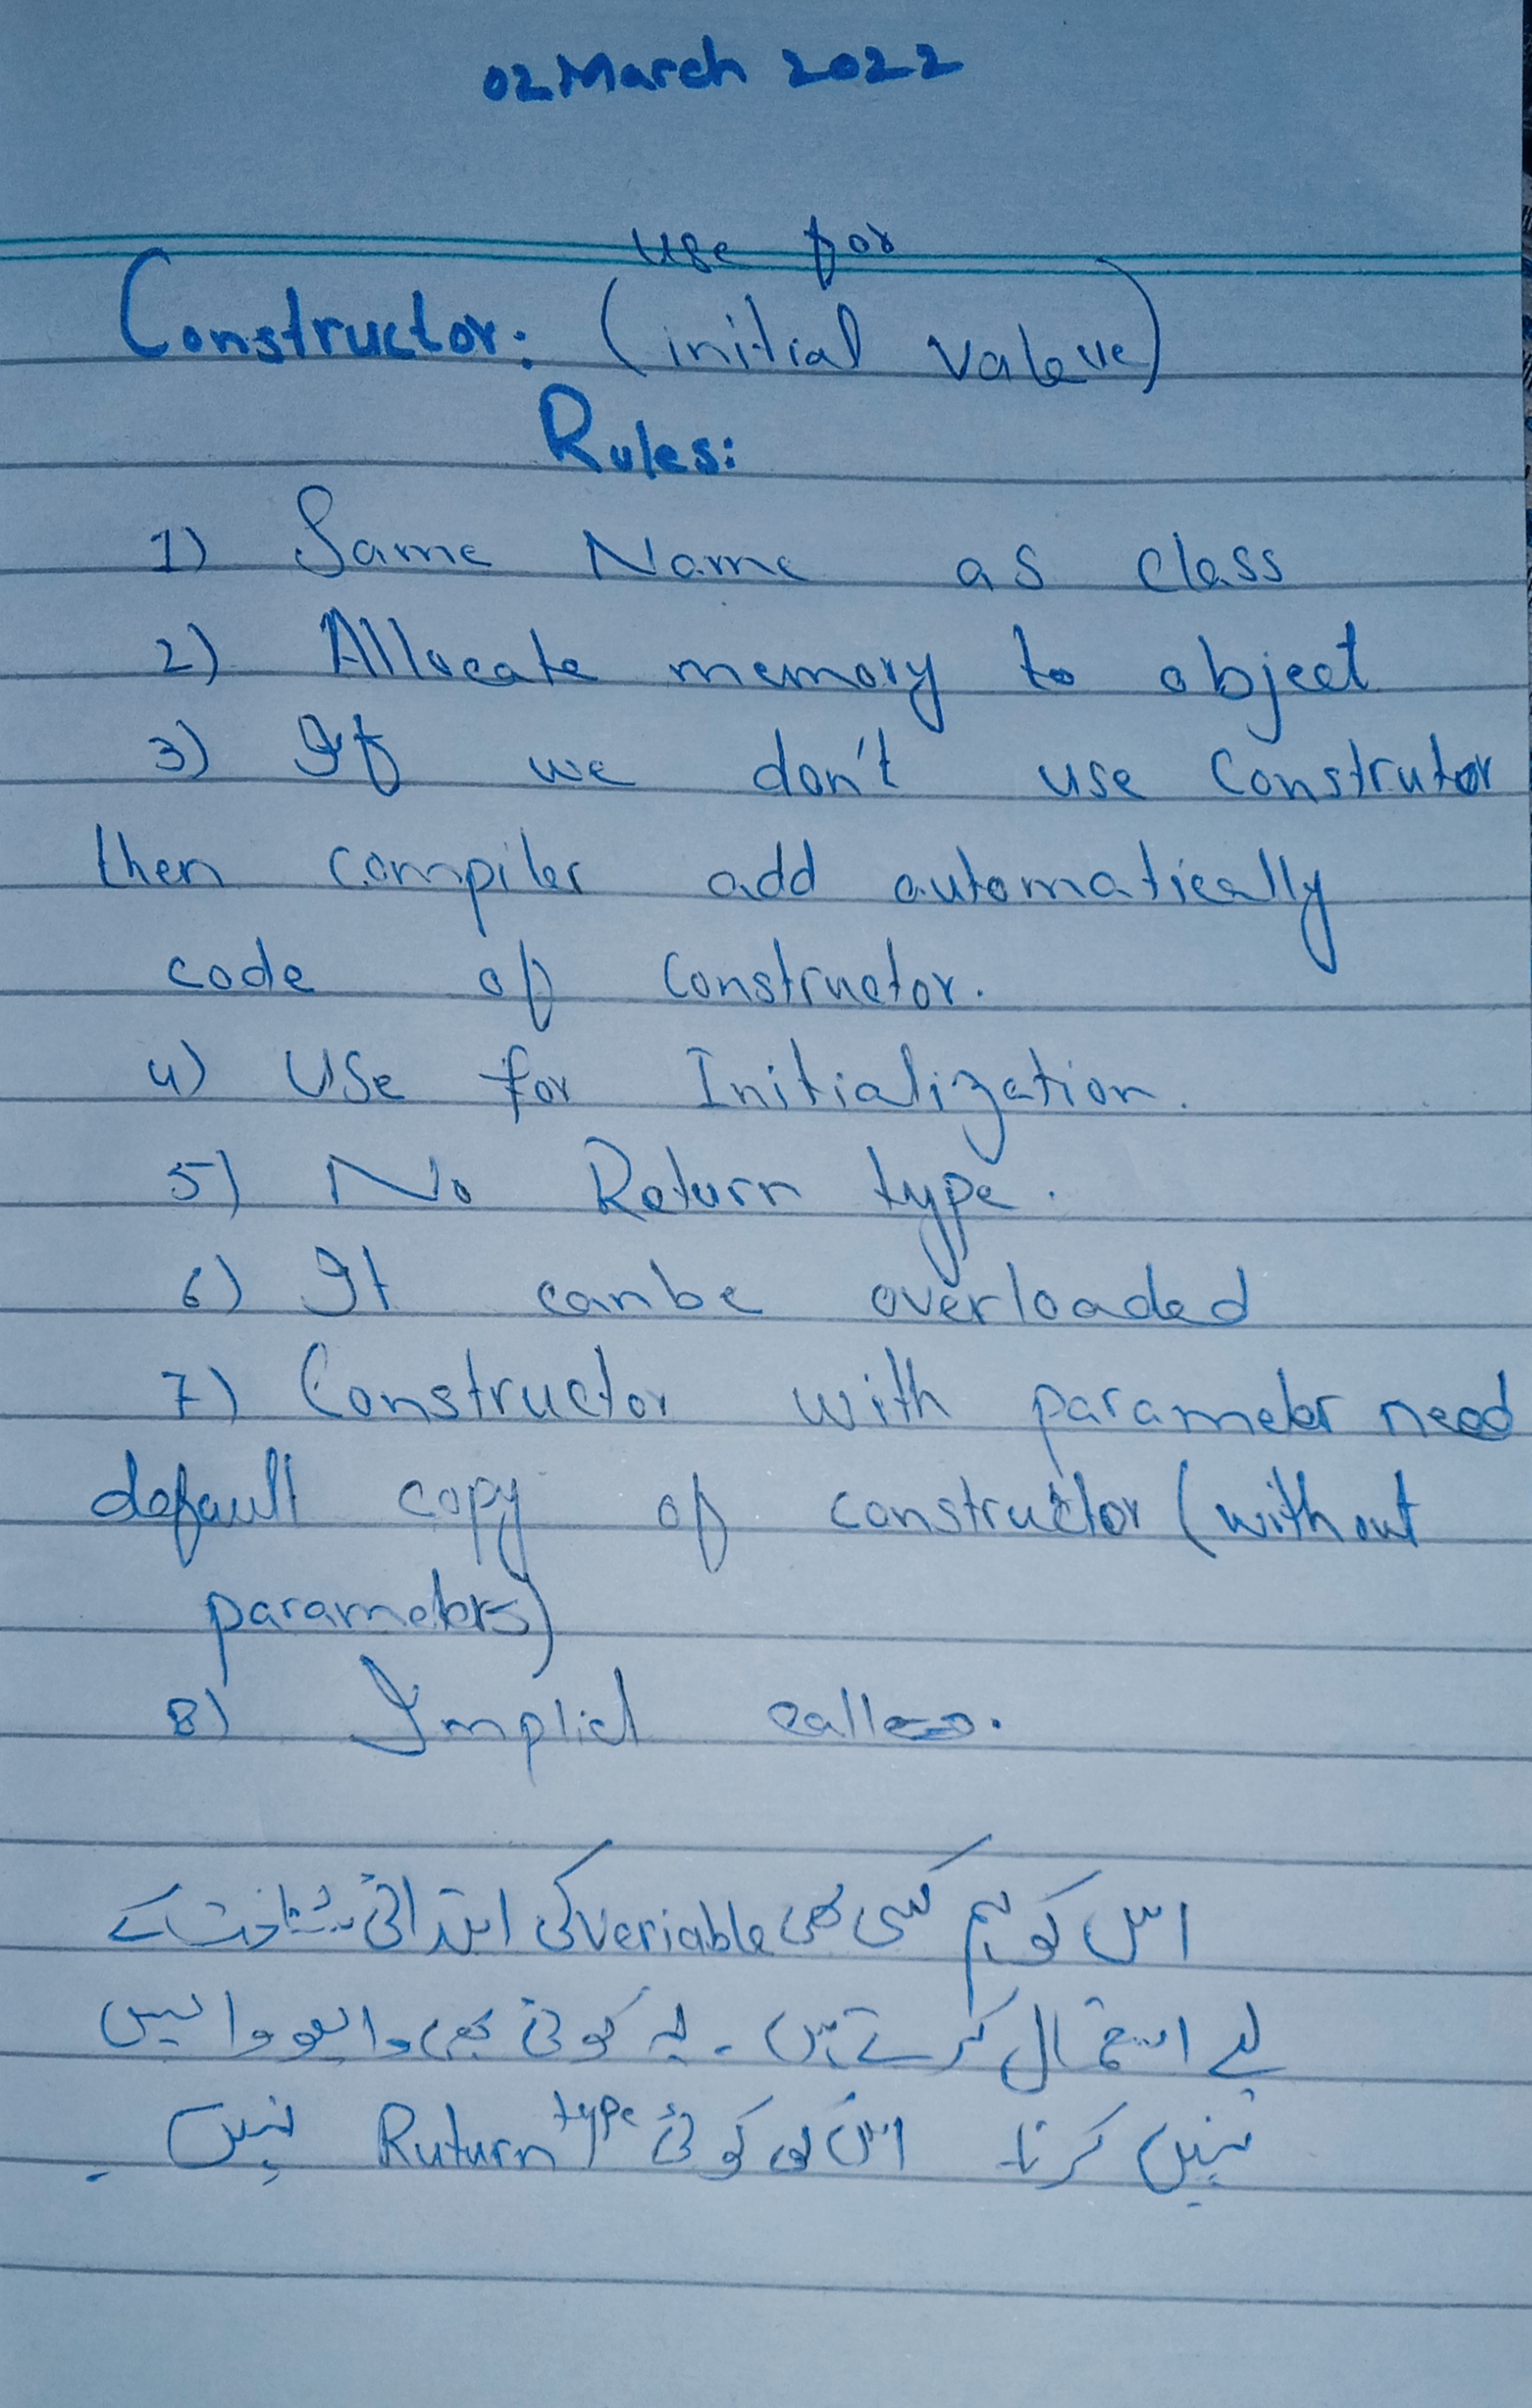 02 March 2022
use for
Constructor: (initial valeue)
Rules:
1) Same Name as class
2) Allocate memory to object
3) If we don't use Construtor
then compiler add automatically
code of constructor.
4) Use for Initialization.
5) No Return type.
6) It canbe overloaded
7) Constructor with parameter need
default copy of constructor (without
parameters)
8) Implict
اس کو ہم کسی بھی veriable کی ابتدائی شناخت کے
لیے استعمال کرتے ہیں ۔ یہ کوئی بھی والیو واپس
نہیں کرتا اس کی کوئی Ruturn type نہیں ۔